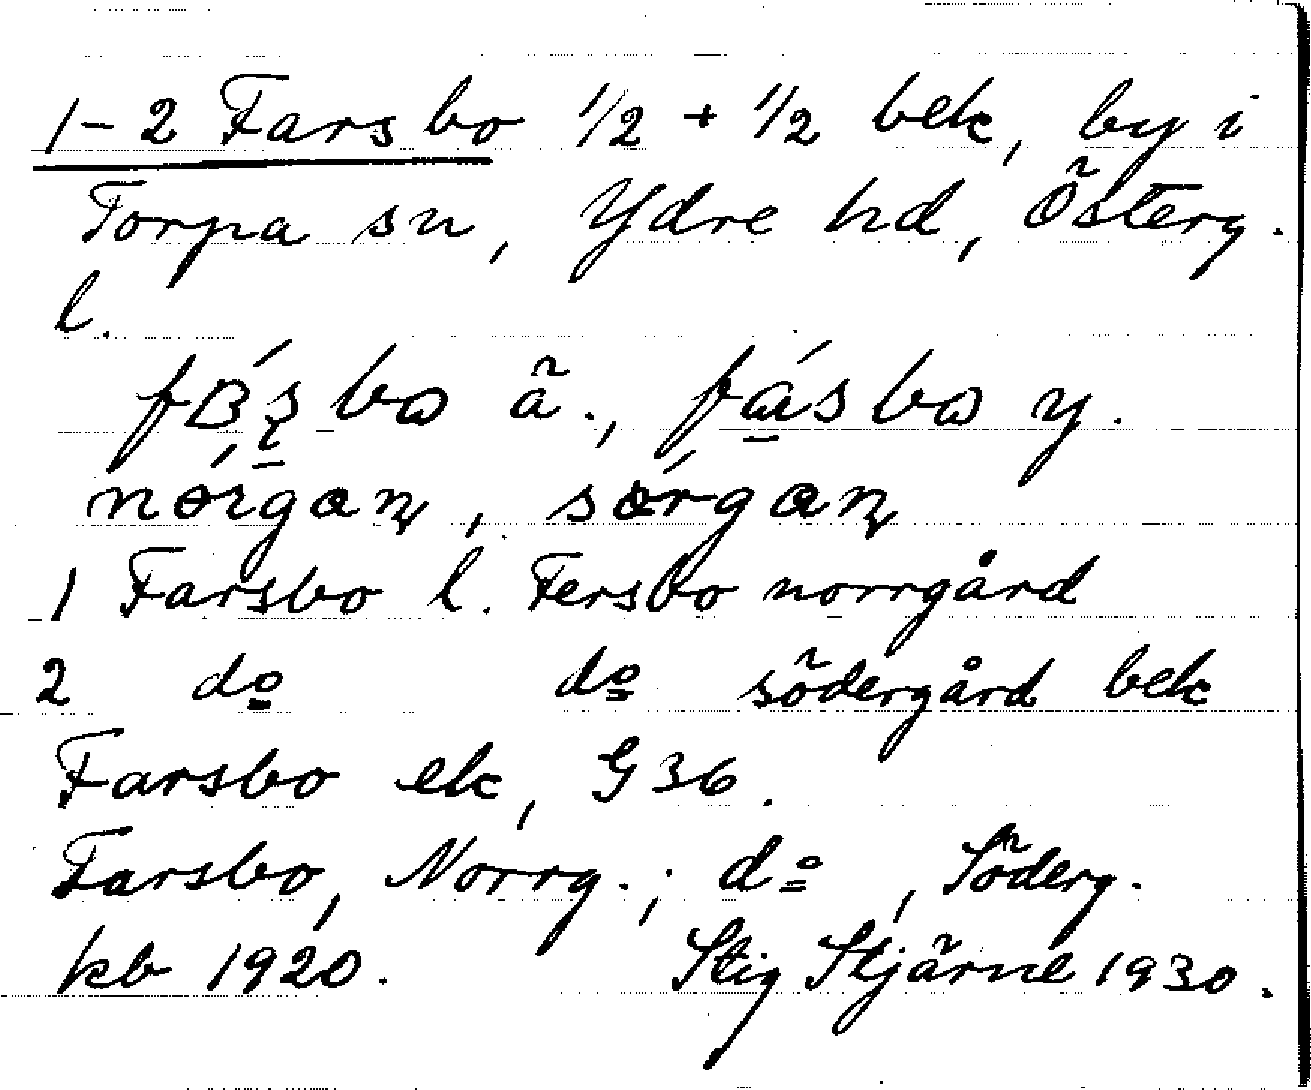 1-2 Farsbo 1/2 + 1/2 bek, by i
Torpa sn, Ydre hd, Österg.
l.
ä., fásbo y.
1 Farsbo l. Fersbo norrgård
2 do do södergård bek
Farsbo ek, G36.
Farsbo, Norrg.; do, Söderg.
kb 1920. Stig Stjärne 1930.